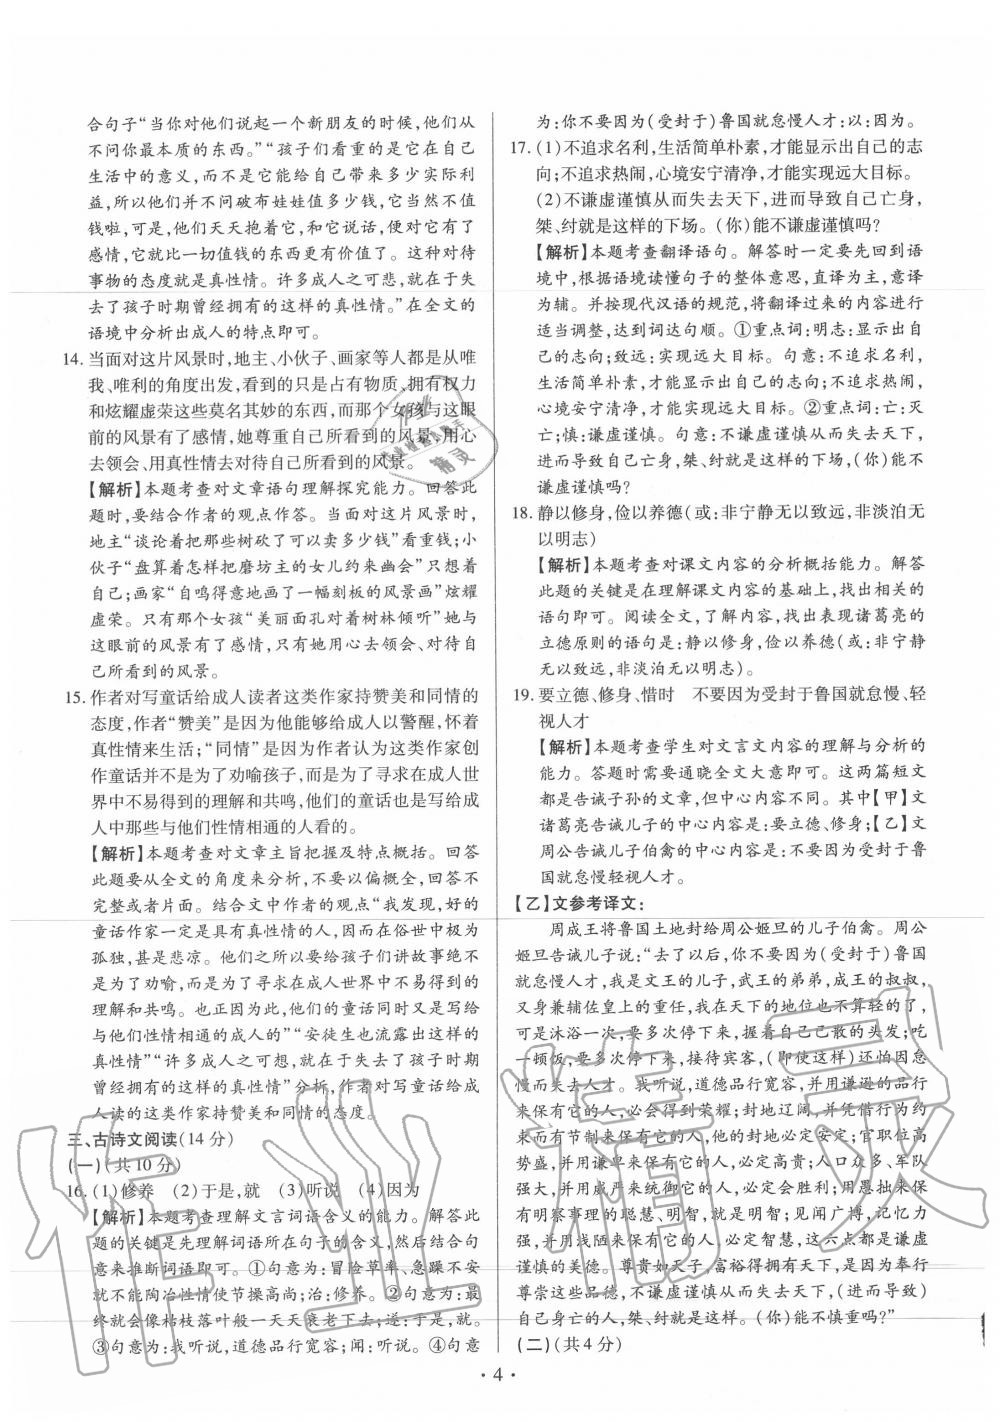 合句子“当你对他们说起一个新朋友的时候,他们从
不问你最本质的东西。”“孩子们看重的是它在自己
生活中的意义,而不是它能给自己带来多少实际利
益,所以他们并不问破布娃娃值多少钱,它当然不值
钱啦,可是,他们天天抱着它,和它说话,便对它有了
感情,它就比一切值钱的东西更有价值了。这种对待
事物的态度就是真性情。许多成人之可悲,就在于失
去了孩子时期曾经拥有的这样的真性情。”在全文的
语境中分析出成人的特点即可。
14. 当面对这片风景时,地主、小伙子、画家等人都是从唯
我、唯利的角度出发,看到的只是占有物质、拥有权力
和炫耀虚荣这些莫名其妙的东西,而那个女孩与这眼
前的风景有了感情,她尊重自己所看到的风景,用心
去领会、用真性情去对待自己所看到的风景。
【解析】本题考查对文章语句理解探究能力。回答此
题时,要结合作者的观点作答。当面对这片风景时,
地主“谈论着把那些树砍了可以卖多少钱”看重钱;小
伙子“盘算着怎样把磨坊主的女儿约来幽会”只想着
自己;画家“自鸣得意地画了一幅刻板的风景画”炫耀
虚荣。只有那个女孩“美丽面孔对着树林倾听”她与
这眼前的风景有了感情,只有她用心去领会、对待自
己所看到的风景。
15. 作者对写童话给成人读者这类作家持赞美和同情的
态度,作者“赞美”是因为他能够给成人以警醒,怀着
真性情来生活;“同情”是因为作者认为这类作家创
作童话并不是为了劝喻孩子,而是为了寻求在成人世
界中不易得到的理解和共鸣,他们的童话也是写给成
人中那些与他们性情相通的人看的。
【解析】本题考查对文章主旨把握及特点概括。回答
此题要从全文的角度来分析,不要以偏概全,回答不
完整或者片面。结合文中作者的观点“我发现,好的
童话作家一定是具有真性情的人,因而在俗世中极为
孤独,甚是悲凉。他们要给孩子们讲故事绝不是
为了劝喻,而是为了寻求在成人世界中不易得到的
理解和共鸣。也正因为此,他们的童话同时又是写给
与他们性情相通的成人的”“安徒生也流露出这样的
真性情”“许多成人之可悲,就在于失去了孩子时期
曾经拥有的这样的真性情”分析,作者对写童话给成
人读的这类作家持赞美和同情的态度。
三、古诗文阅读(14 分)
(一)(共 10 分)
16. (1)修养 (2)于是,就 (3)听说 (4)因为
【解析】本题考查理解文言词语含义的能力。解答此
题的关键是先理解词语所在句子的含义,然后结合句
意来推断词语即可。①句意为:冒险草率、急躁不安
就不能陶冶性情使节操高尚;治:修养。②句意为:最
终就会像枯枝落叶般一天天衰老下去;遂:就。
③句意为:我听说,道德品行宽容;闻:听说。④句意
为:你不要因为(受封于)鲁国就怠慢人才;以:因为。
17. (1)不追求名利,生活简单朴素,才能显示出自己的志
向;不追求热闹,心境安宁清净,才能实现远大目标。
(2)不谦虚谨慎从而失去天下,进而导致自己亡身,
桀、纣就是这样的下场。(你)能不谦虚谨慎吗?
【解析】本题考查翻译语句。解答时一定要先回到语
境中,根据语境读懂句子的整体意思,直译为主,意译
为辅。并按现代汉语的规范,将翻译过来的内容进行
适当调整,达到词达句顺。①重点词:明志:显示出自
己的志向;致远:实现远大目标。句意:不追求名利,
生活简单朴素,才能显示出自己的志向;不追求热闹,
心境安宁清净,才能实现远大目标。②重点词:亡:灭
亡;慎:谦虚谨慎。句意:不谦虚谨慎从而失去天下,
进而导致自己亡身,桀、纣就是这样的下场,(你)能不
谦虚谨慎吗?
18. 静以修身,俭以养德(或:非宁静无以致远,非淡泊无
以明志)
【解析】本题考查对课文内容的分析概括能力。解答
此题的关键是在理解课文内容的基础上,找出相关的
语句即可。阅读全文,了解内容,找出表现诸葛亮的
立德原则的语句是:静以修身,俭以养德(或:非宁静
无以致远,非淡泊无以明志)。
19. 要立德、修身、惜时 不要因为受封于鲁国就怠慢、轻
视人才
【解析】本题考查学生对文言文内容的理解与分析的
能力。答题时需要通晓全文大意即可。这两篇短文
都是告诫子孙的文章,但中心内容不同。其中【甲】文
诸葛亮告诫儿子的中心内容是:要立德、修身;【乙】文
周公告诫儿子伯禽的中心内容是:不要因为受封于鲁
国就怠慢轻视人才。
【乙】文参考译文:
周成王将鲁国土地封给周公姬旦的儿子伯禽。周公
姬旦告诫儿子说:“去了以后,你不要因为(受封于)鲁国
就怠慢人才,我是文王的儿子,武王的弟弟,成王的叔叔,
又身兼辅佐皇上的重任,我在天下的地位也不算轻的了,
可是沐浴一次,要多次停下来,握着自己已散的头发;吃
一顿饭,要多次停下来,接待宾客,(即使这样)还怕因怠
慢而失去人才。我听说,道德品行宽容,并用谦逊的品行
来保有它的人,必会得到荣耀;封地辽阔,并凭借行为
束而有节制来保有它的人,他的封地必定安定;官职位高
势盛,并用谦卑来保有它的人,必定高贵;人口众多、军队
强大,并用威严来统御它的人,必定会胜利;用愚拙来保
有明察事理的聪慧、明智,必定是明智;见闻广博,记忆力
强,并用浅陋来保有它的人,必定智慧,这六点都是谦虚
谨慎的美德。尊贵如天子,富裕得拥有天下,是因为奉行
尊崇这些品德,不谦虚谨慎从而失去天下,(进而导致)
自己身亡的人,桀、纣就是这样。(你)能不慎重吗?”
(二)(共 4 分)
· 4 ·
作业精灵